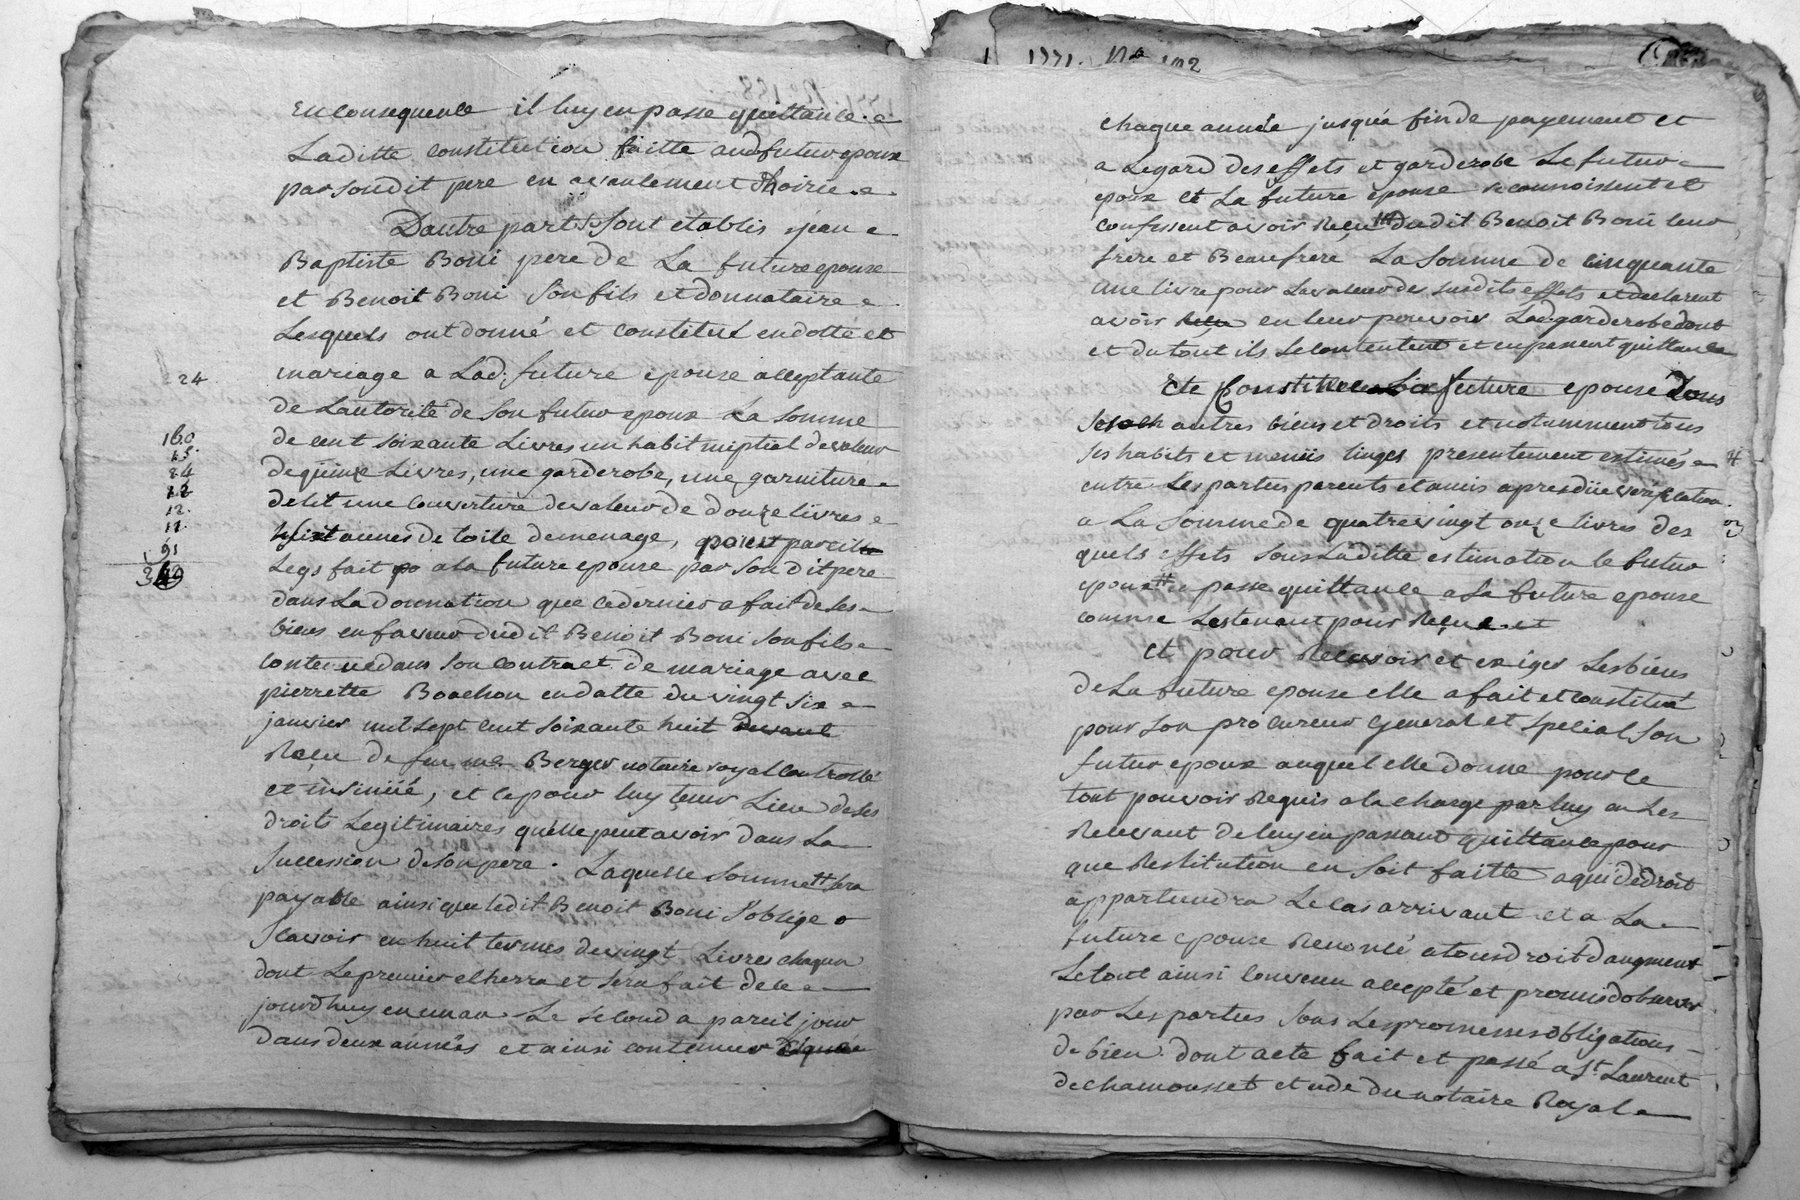 En consequence il luy en passe quittance.
Laditte constitution faitte audfutur epoux
par sondit pere en avancement dhoirie.
Dautre part Sont etablis jean
Baptiste Boni pere de La future epouse
et Benoit Boni Son fils et donnataire
Lesquels ont donné et constitué en dotte et
mariage a Lad. future epouse acceptante
de Lautorité de Son futur epoux La Somme
de cent soixante Livres un habit nuptial devaleur
de quinze Livres, une garderobe, une garniture
de lit une couverture devaleur de douze livres
huit aunes de toile demenage, pareil
Legs fait a la future epouse par Son dit pere
dans La donnation que cedernier a fait de ses
biens en faveur dudit Benoit Boni Son fils
contenue dans Son contract de mariage avec
pierrette Boachon en datte du vingt six
janvier mil sept cent soixante huit
Recu de feu me Berger notaire royal controllé
et insinué, et ce pour luy tenir Lieu de ses
droits Legitimaires qu'elle peut avoir dans La
Succession de Son pere. Laquelle Somme sera
payable ainsi que ledit Benoit Boni S'oblige
Scavoir en huit termes de vingt Livres chaqun
dont Le premier echerra et sera fait de ce
jourdhuy en un an Le second a pareil jour
dans deux années et ainsi continuer
24
160
15.
24
12
12.
11.
91
chaque année jusqu'a fin de payement et
a Legard des effets et garderobe Le futur
epoux et La future epouse reconnoissent et
confessent avoir Reçu dudit Benoit Boni leur
frere et Beaufrere La Somme de cinquante
une livre pour La valeur des susdits effets et declarent
avoir en leur pouvoir Lad. garderobe dont
et du tout ils Se contentent et en passent quittance
Se Constitue La future epouse tous
autres biens et droits et notamment tous
Ses habits et menüs linges presentement estimés
entre Les parties parents et amis apres düe verification
a La Somme de quatrevingt onze livres des
quels effets sous Laditte estimation le futur
epoux passe quittance a La future epouse
comme Les tenant pour Reçue et
et pour Recevoir et exiger Les biens
de La future epouse elle a fait et constitué
pour Son procureur General et special Son
futur epoux auquel elle donne pour ce
tout pouvoir Requis a la charge par luy en Les
Recevant de luy en passant quittance pour
que Restitution en Soit faitte a qui de droit
appartiendra Le cas arrivant et a La
future epouse Renoncé a tous droit d'augment
Le tout ainsi convenu accepté et promis dobserver
par Les parties Sous Les promesses obligations
de bien dont acte fait et passé a St. Laurent
de chamousset etude du notaire Royal